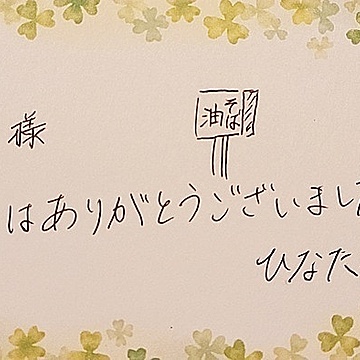 様
油そば
はありがとうございました
ひなた